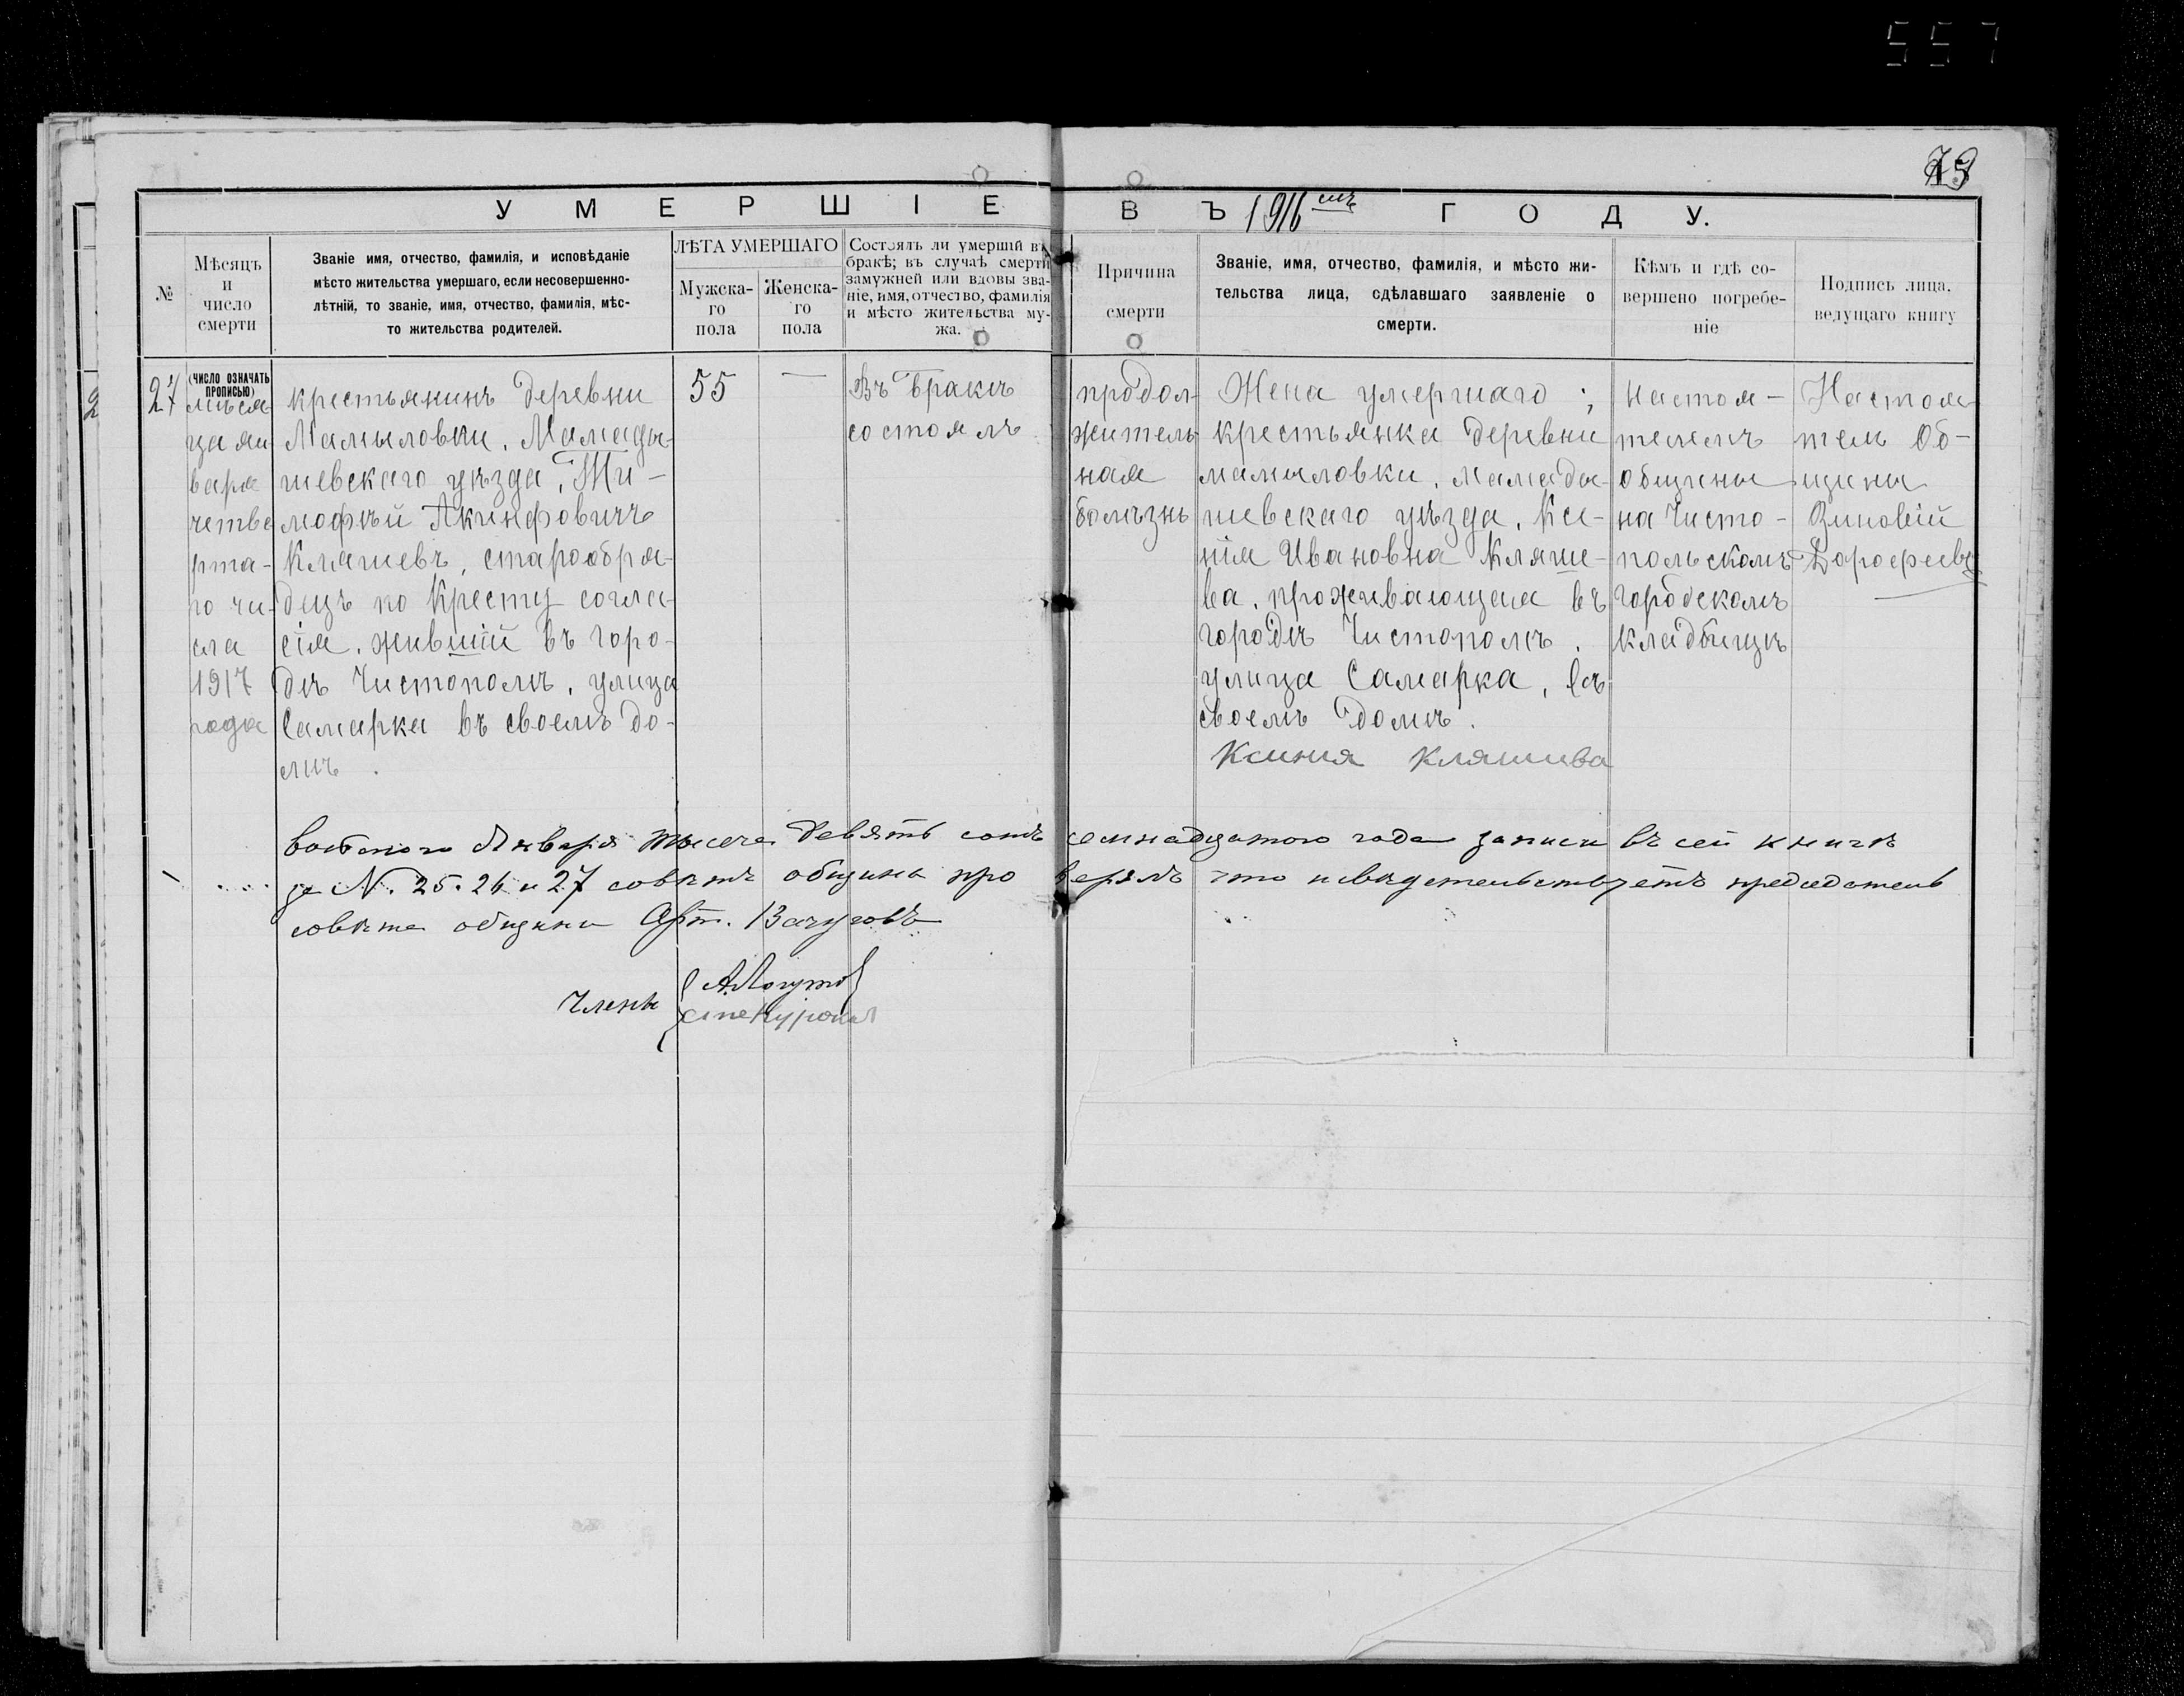 557
73
УМЕРШІЕ ВЪ 1916 мъ ГОДУ.
№
Мѣсяцъ
и
число
смерти
Званіе имя, отчество, фамилія, и исповѣданіе
мѣсто жительства умершаго, если несовершенно-
лѣтній, то званіе, имя, отчество, фамилія, мѣс-
то жительства родителей.
ЛѢТА УМЕРШАГО
Мужска-
го
пола
Женска-
го
пола
Состоялъ ли умершій въ
бракѣ; въ случаѣ смерти
замужней или вдовы зва-
ніе, имя, отчество, фамилія
и мѣсто жительства му-
жа.
Причина
смерти
Званіе, имя, отчество, фамилія, и мѣсто жи-
тельства лица, сдѣлавшаго заявленіе о
смерти.
Кѣмъ и гдѣ со-
вершено погребе-
ніе
Подпись лица,
ведущаго книгу
2
27
(ЧИСЛО ОЗНАЧАТЬ
ПРОПИСЬЮ)
мѣся
ца ян
варя
четве
рта-
го чи-
сла
1917
года
крестьянинъ деревни
Мамыловки, Мамады-
шевскаго уѣзда, Ти-
мофѣй Акинфовичъ
Кляшевъ, старообря-
децъ по Кресту согла-
сія, жившій въ горо-
дѣ Чистополѣ, улица
Самарка въ своемъ до-
мѣ.
55
—
Въ бракѣ
состоялъ
продол-
житель
ная
болѣзнь
Жена умершаго;
крестьянка деревни
мамыловки, мамады-
шевскаго уѣзда, Ксе-
нія Ивановна Кляше-
ва, проживающая въ
городѣ Чистополѣ,
улица Самарка, въ
своемъ домѣ.
Ксиния Кляшива
Настоя-
телемъ
общины
на Чисто-
польскомъ
городскомъ
кладбищѣ
Настоя-
тель Об-
щины
Зиновій
Дорофеевъ
восьмого Января тысеча девять сотъ семнадцатого года записи въ сей книгѣ
за N. 25. 26 и 27 совѣтъ общины про верялъ что и свидетельствуетъ председатель
совѣта общины Арт. Вачуговъ
Члены
А. Логутов